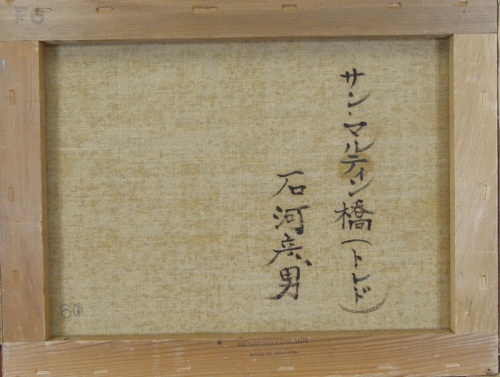 サン・マルティン橋(トレド)
石河彦男
F6